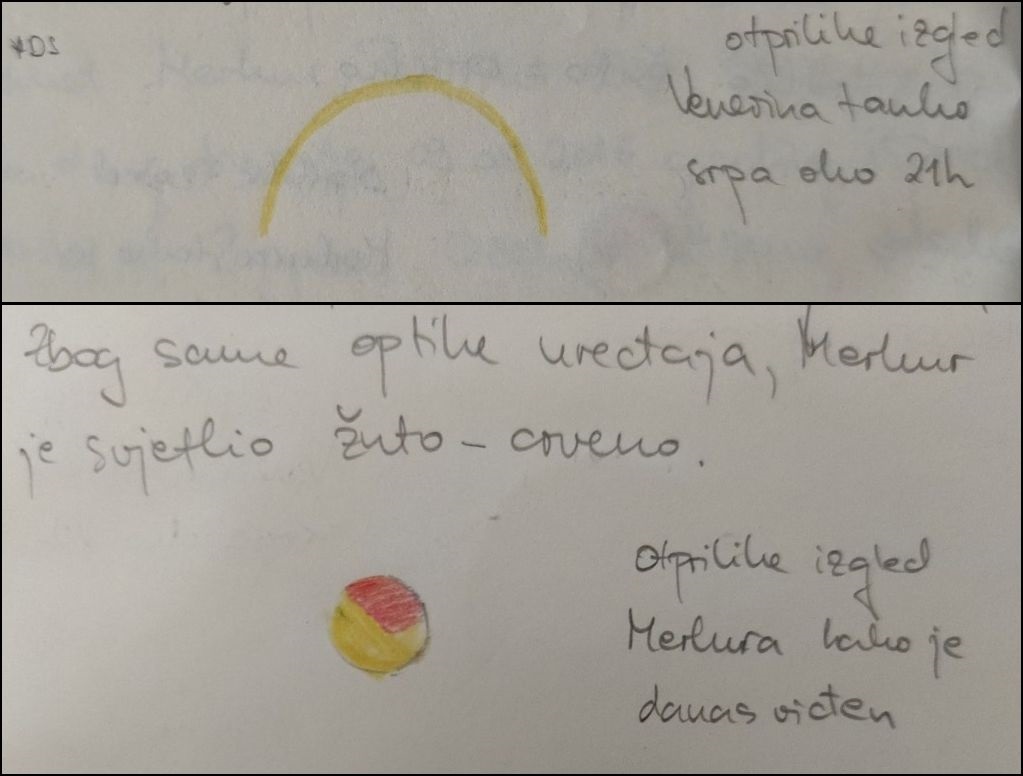 otprilike izgled
Venerina tanko
srpa oko 21h
Zbog same optike uređaja, Merkur
je svjetlio žuto-crveno.
Otprilike izgled
Merkura kako je
danas viđen